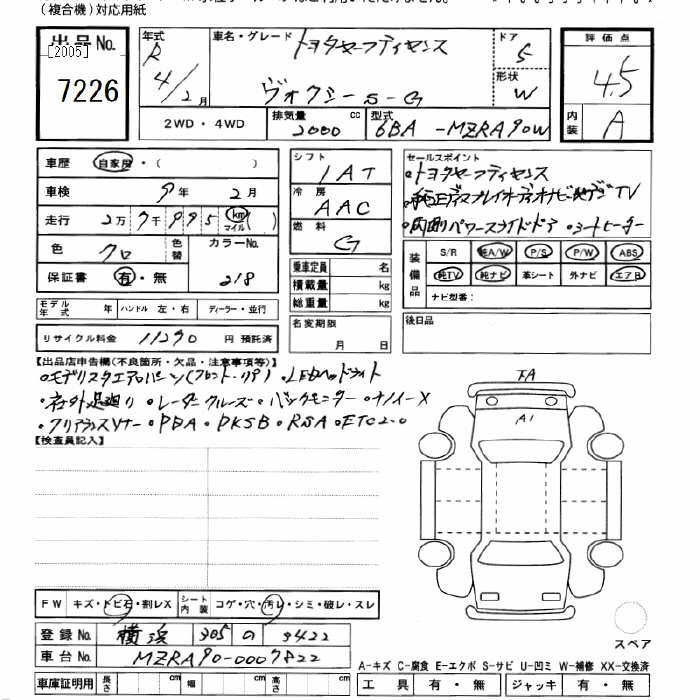 (複合機)対応用紙
出品No. [2005] 7226
年式 R 4/2月
車名・グレード トヨタセーフティセンス
ヴォクシー S-G
ドア 5
形状 W
評価点 4.5
内装 A
2WD・4WD
排気量 2000 cc
型式 6BA -MZRA90W
車歴 自家用・( )
車検 9年 2月
走行 2万7千995 km マイル ( )
色 クロ 色替 カラーNo. 218
保証書 有・無
シフト IAT
冷房 AAC
燃料 G
乗車定員 名
積載量 kg
総重量 kg
セールスポイント
・トヨタセーフティセンス
・純正ディスプレイオーディオナビ・地デジTV
・両側パワースライドドア ・シートヒーター
装備品 S/R 純A/W P/S P/W ABS
純TV 純ナビ 革シート 外ナビ エアB
ナビ型番:
モデル年式 年 ハンドル 左・右 ディーラー・並行
リサイクル料金 11290 円 預託済
名変期限 月 日
後日品
【出品店申告欄(不良箇所・欠品・注意事項等)】
・モデリスタエアロパーツ(フロント・リア) ・LEDヘッドライト
・社外足廻り ・レーダークルーズ・バックモニター・ナノイーX
・クリアランスソナー・PDA・PKSB・RSA・ETC2.0
【検査員記入】
FA
A1
FW キズ・トビ石・割レX シート内装 コゲ・穴・汚レ・シミ・破レ・スレ
登録No. 横浜 305 の 9422
車台No. MZRA90-0007822
スペア
A-キズ C-腐食 E-エクボ S-サビ U-凹ミ W-補修 XX-交換済
車庫証明用 長さ cm 幅 cm 高さ cm
工具 有・無 ジャッキ 有・無